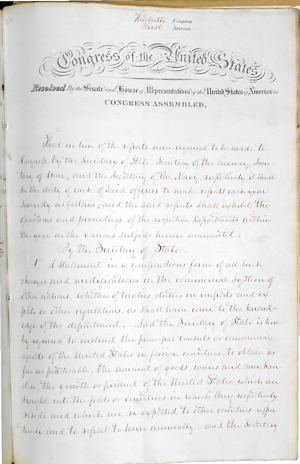 Thirtieth Congress
First Session
Congress of the United States,
Resolved By the Senate and House of Representatives of the United States of America in
CONGRESS ASSEMBLED,
That in lieu of the reports now required to be made to
Congress by the Secretary of State, Secretary of the Treasury, Secre-
tary of War, and the Secretary of the Navy, respectively, it shall
be the duty of each of said officers to make report each year
severally as follows; and the said reports shall exhibit the
operations and proceedings of the respective Departments within
the year on the various subjects herein enumerated:
By the Secretary of State
1st. A statement in a compendious form of all such
changes and modifications in the commercial systems of
other nations, whether by treaties, duties on imports and ex-
ports or other regulations, as shall have come to the knowl-
edge of the department. And the Secretary of State is here-
by required to instruct the principal consuls or commercial
agents of the United States in foreign countries, to obtain as
far as practicable, the amount of goods, wares and merchan-
dise, the growth or product of the United States, which are
the ports or countries in which they respectively
reside and which are re-exported to other countries respec-
tively and to report to him annually - and the Secretary